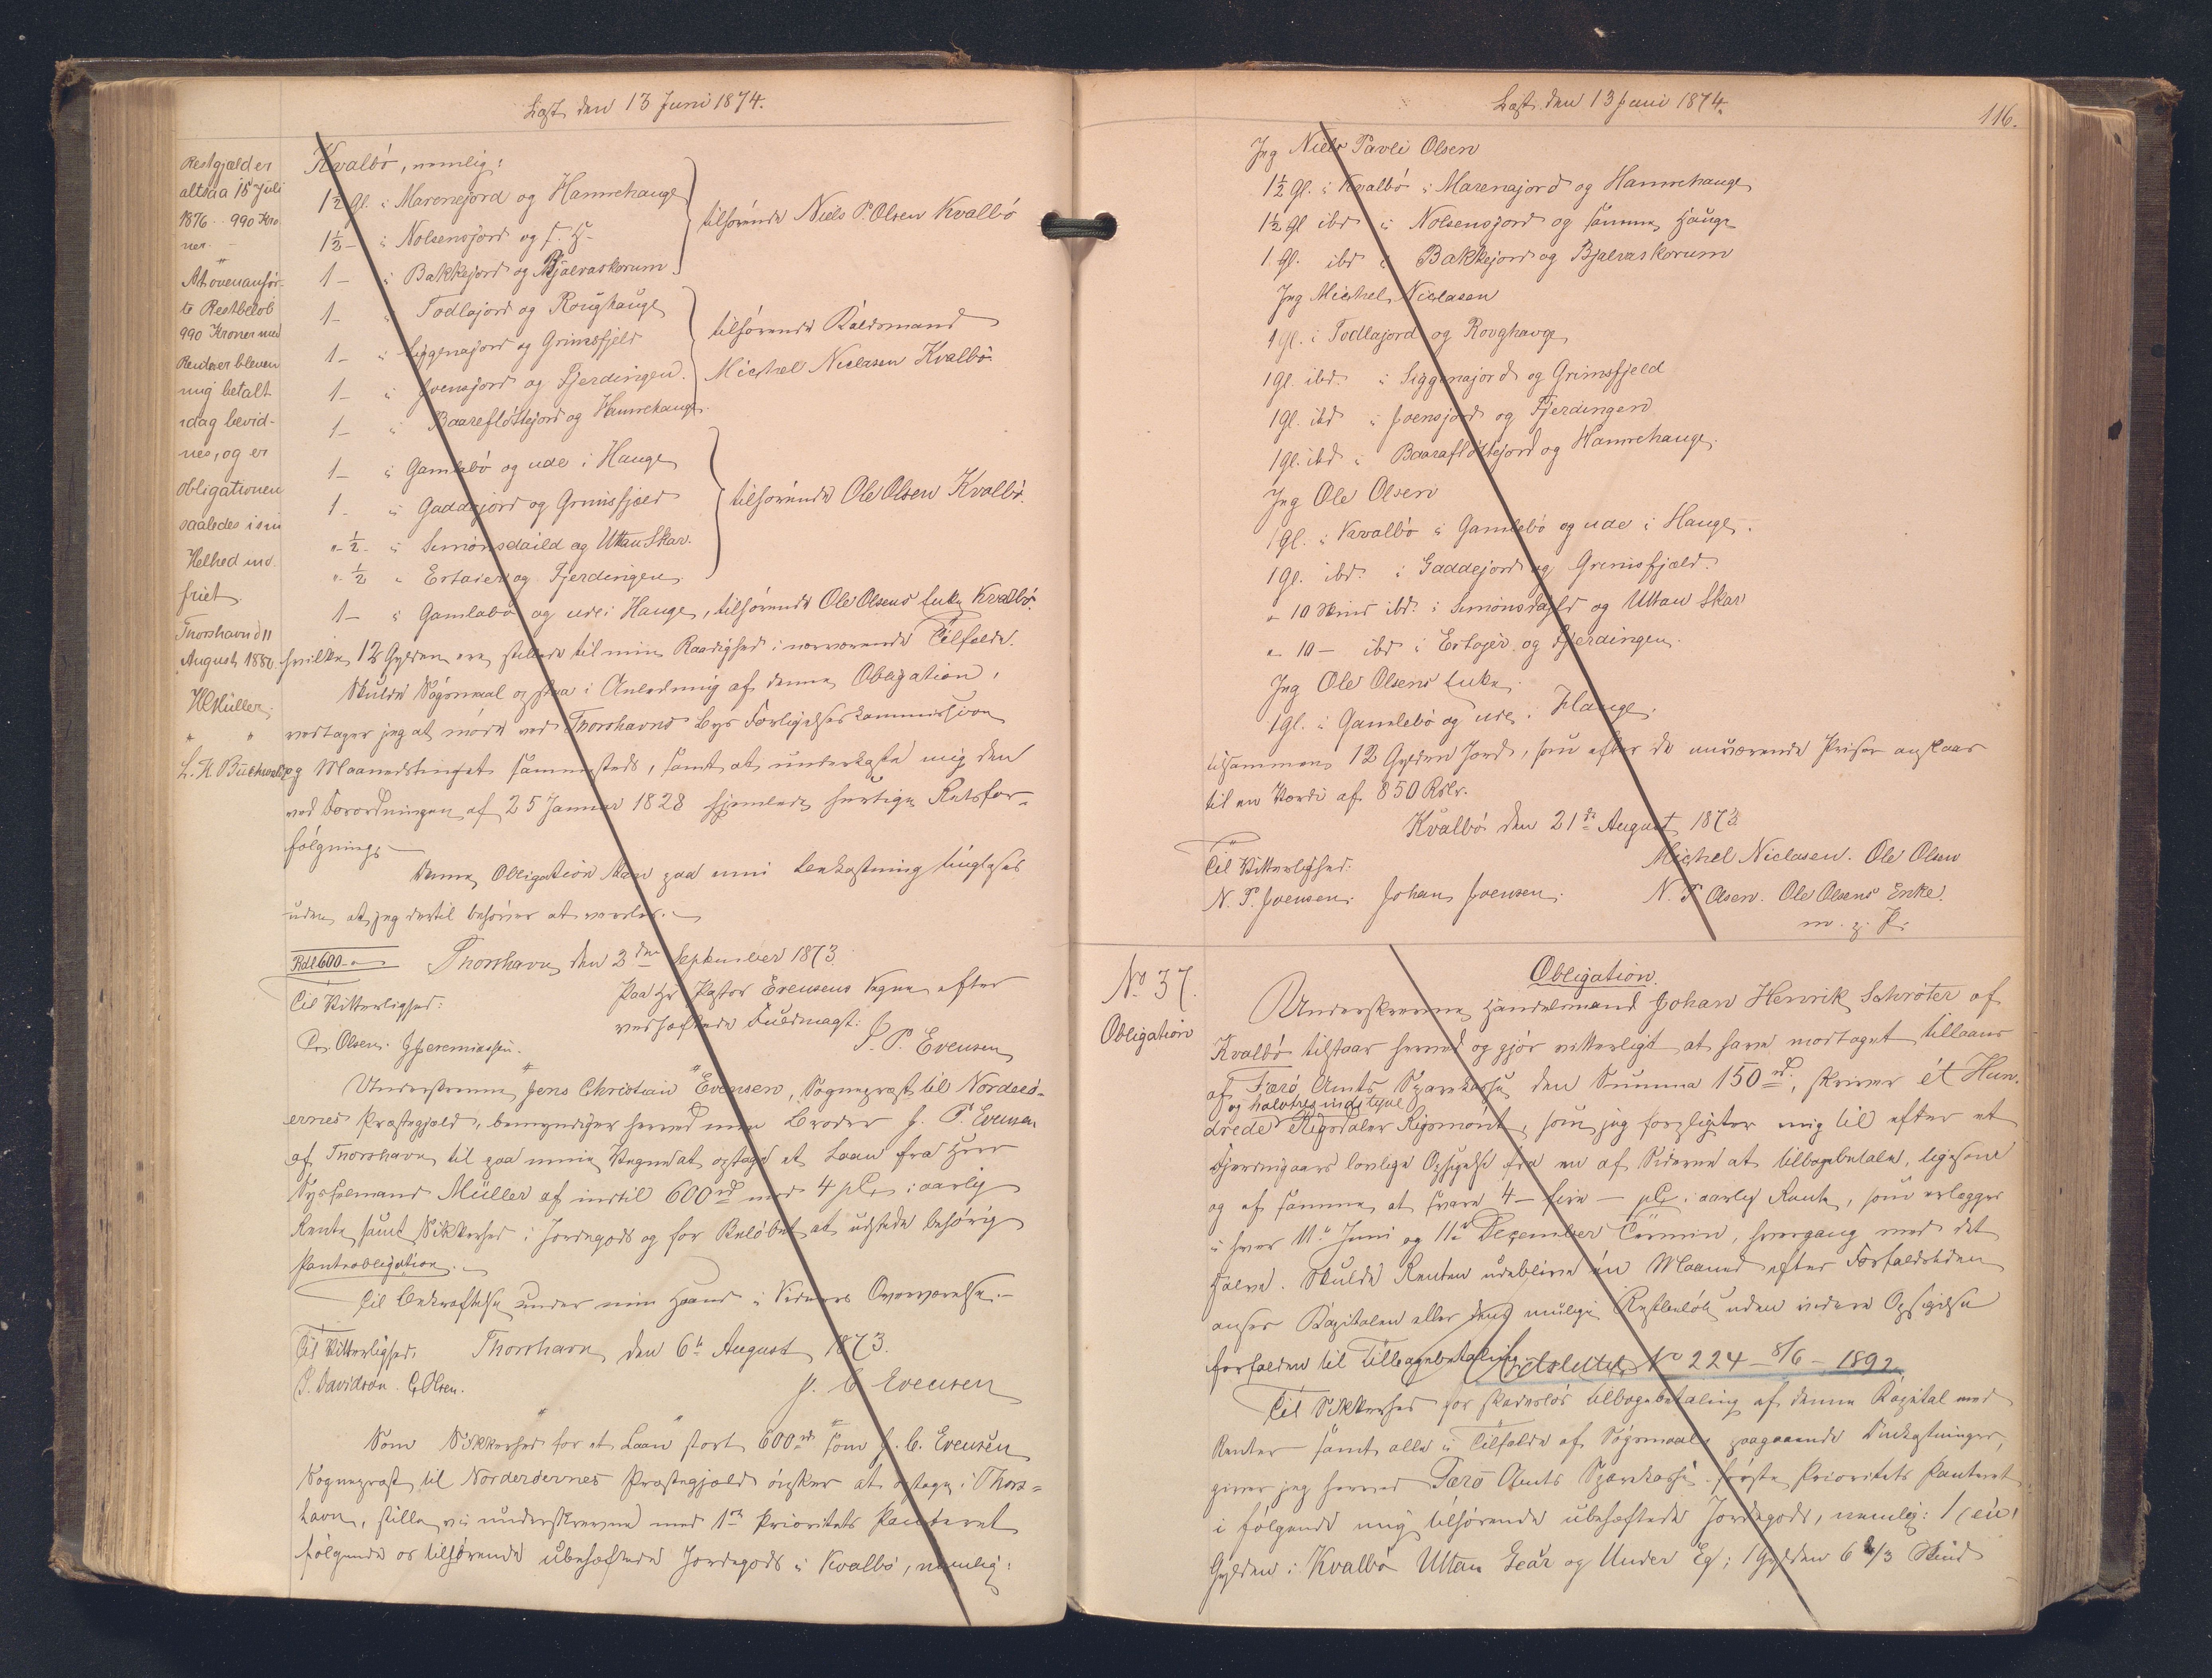 Læst den 13 Juni 1874.
Restgjæld er
altsaa 15 Juli
1876 .. 990 Kro
ner. -
At ovenanför-
te Restbelöb
990 Kroner med
Renter er bleven
mig betalt
idag bevid-
nes, og er
Obligationen
saaledes i sin
Helhed ind
friet.
Thorshavn d 11
August 1880.
HMüller.
L. H Buchwaldt
Kvalbö, nemlig:
1½ Gl. i Marenejord og Hamrehauge
1½ - i Nolsensjord og s. H.
1 - i Bakkejord og Bjalvaskorum
tilhörende Niels P. Olsen Kvalbö
1 - i Todlajord og Roughauge
1 - i Siggenajord og Grimsfjeld
1 - i Joensjord og Fjerdingen.
1 - i Baareflöttejord og Hamrehauge.
tilhörende Raadsmand
Michel Niclasen Kvalbö.
1 - i Gamlebö og ude i Hauge
1 - i Gaddejord og Grimsfjæld
" ½ - i Simonsdaild og Uttan Skar.
" ½ " Ertaier og Fjerdingen
tilhörende Ole Olsen Kvalbö.
1 - i Gamlabö og ude i Hauge, tilhörende Ole Olsens Enke Kvalbö,
hvilke 12 Gylden ere stillede til min Raadighed i nærværende Tilfælde.
Skulde Sögsmaal opstaa i Anledning af denne Obligation,
vedtager jeg at möde ved Thorshavns Byes Forligelseskommission
og Maanedstinget sammesteds, samt at underkaste mig den
ved Forordningen af 25 Januar 1828 hjemlede hurtige Retsfor-
fölgning. -
Denne Obligation kan paa min Bekostning tinglæses
uden at jeg dertil behöver at varsles. -
Rdl 600 -
Thorshavn den 3den September 1873.
Til Vitterlighed:
Paa Hr Pastor Evensens Vegne efter
vedhæftede Fuldmagt:
J. P. Evensen
Olsen. J Jeremiassen.
Underskrevne Jens Christian Evensen, Sognepræst til Norderö-
ernes Præstegjæld, bemyndiger herved min Broder J. P. Evensen
af Thorshavn til paa mine Vegne at optage et Laan fra Herr
Sysselmand Müller af indtil 600 rd med 4 pCt i aarlig
Rente samt Sikkerhed i Jordegods og for Belöbet at udstede behörig
Panteobligation. -
Til Bekræftelse under min Haand i Vidners Overværelse. -
Til Vitterlighed.
Thorshavn den 6te August 1873.
P. Davidson. C. Olsen.
J. C Evensen
Som Sikkerhed for et Laan stort 600 rd som J. C. Evensen
Sognepræst til Norderöernes Præstegjæld önsker at optage i Thors=
havn, stille vi underskrevne med 1ste Prioritets Panteret
fölgende os tilhörende ubehæftede Jordegods i Kvalbö, nemlig:
Læst den 13 Juni 1874.
116.
Jeg Niels Pavli Olsen
1½ Gl. i Kvalbö i Marenajord og Hamrehauge
1½ Gl ibd i Nolsensjord og samme Hauge
1 Gl. ibd i Bakkejord og Bjalvaskorum
Jeg Michel Niclasen
1 Gl. i Todlajord og Rovghavge
1 Gl. ibd. i Siggenajord og Grimsfjeld
1 Gl. ibd i Joensjord og Fjerdingen
1 Gl. ibd i Baaraflöttejord og Hamrehauge.
Jeg Ole Olsen
1 Gl. i Kvalbö i Gamlebö og ude i Hauge.
1 Gl. ibd. i Gaddejord og Grimsfjæld.
" 10 Skind ibd. i Simonsdaild og Uttan Skar
" 10 - ibd i Ertajer og Fjerdingen.
Jeg Ole Olsens Enke.
1 Gl. i Gamlebö og ude i Hauge.
tilsammen 12 Gylden Jord, som efter de nuværende Priser anslaaes
til en Værdi af 850 Rdlr.
Kvalbö den 21de August 1873
Til Vitterlighed:
N. P. Joensen. Johan Joensen.
Michel Niclasen. Ole Olsen
N. P Olsen. Ole Olsens Enke.
m. p. P.
No 37.
Obligation
Obligation.
Underskrevne Handelsmand Johan Henrik Schröter af
Kvalbö tilstaar herved og gjör vitterligt at have modtaget tillaans
af Færö Amts Sparekasse den Summa 150 rd, skriver ét Hun-
og halvtredsindstyve
drede Rigsdaler Rigsmönt, som jeg forpligter mig til efter et
Fjerdingaars lovlige Opsigelse fra en af Siderne at tilbagebetale, ligesom
og af samme at svare 4 - fire - pCt. i aarlig Rente, som erlægges
i hver 11te Juni og 11te December Termin, hvergang med det
halve. Skulde Renten udeblive én Maaned efter Forfaldstiden
anses Kapitalen eller dens mulige Restbelöb uden videre Opsigelse
forfalden til Tilbagebetaling.
Udslettet No 224 - 8/6 - 1892
Til Sikkerhed for skadeslös Tilbagebetaling af denne Kapital med
Renter samt alle i Tilfælde af Sögsmaal paagaaende Omkostninger,
giver jeg herved Færö Amts Sparekasse förste Prioritets Panteret
i fölgende mig tilhörende ubehæftede Jordegods, nemlig: 1 (én)
Gylden i Kvalbö Uttan Geár og Under Eg; 1 Gylden 6 2/3 Skind